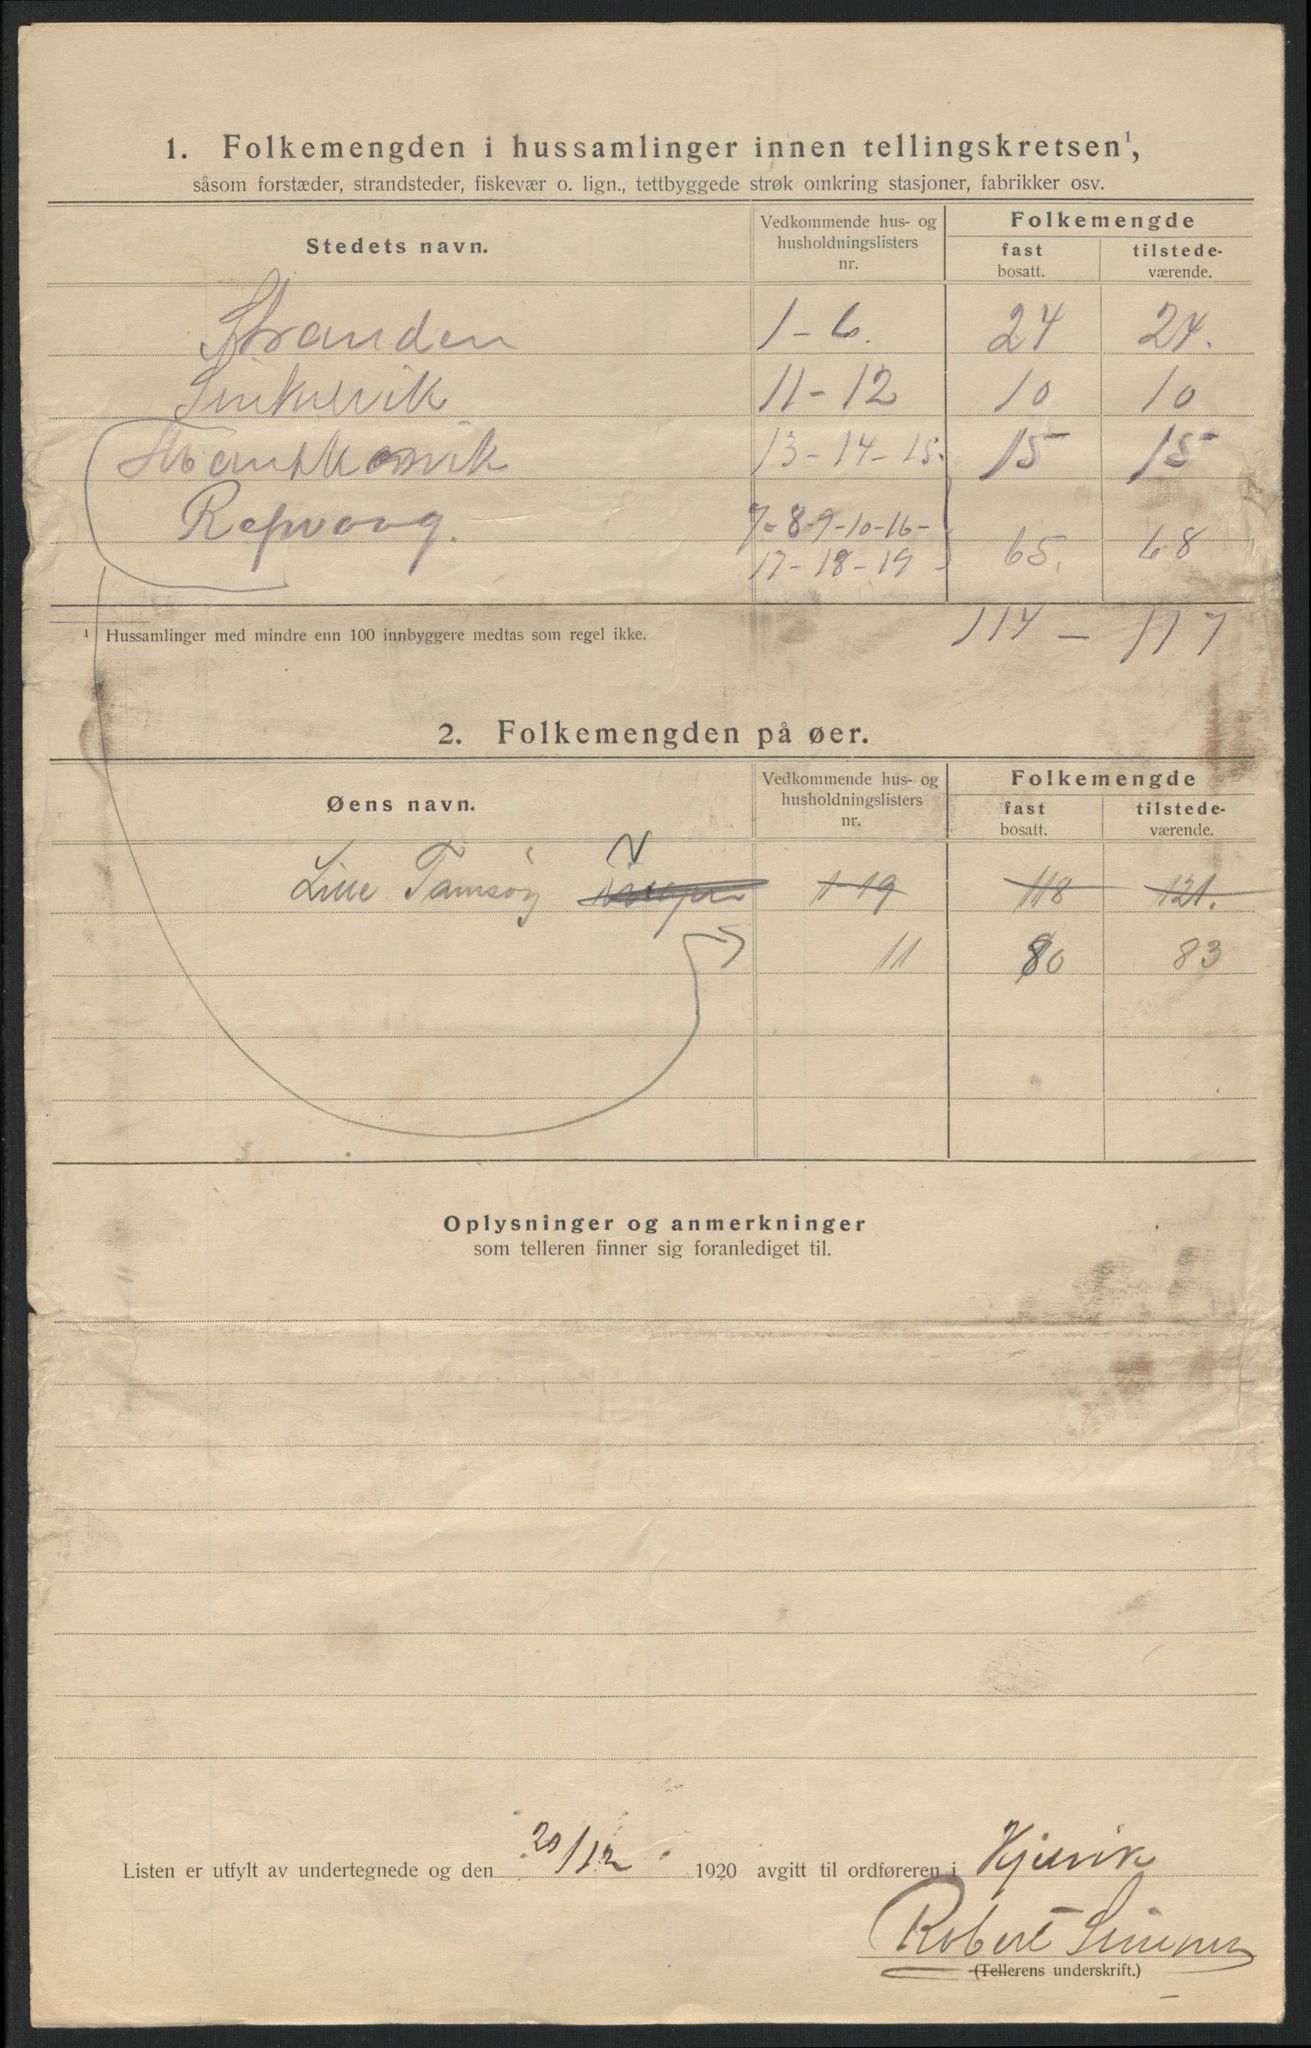 1. Folkemengden i hussamlinger innen tellingskretsen¹,
såsom forstæder, strandsteder, fiskevær o. lign., tettbyggede strøk omkring stasjoner, fabrikker osv.
Stedets navn.
Vedkommende hus- og husholdningslisters nr.
Folkemengde
fast bosatt.
tilstede-værende.
Stranden 1-6. 24 24.
11-12 10 10
13-14-15. 15 15
Repvaag. 7-8-9-10-16-
17-18-19 65. 68
¹ Hussamlinger med mindre enn 100 innbyggere medtas som regel ikke.
114 - 117
2. Folkemengden på øer.
Øens navn.
Vedkommende hus- og husholdningslisters nr.
Folkemengde
fast bosatt.
tilstede-værende.
Lille Tamsøy 1-19 118 121.
11 80 83
Oplysninger og anmerkninger
som telleren finner sig foranlediget til.
Listen er utfylt av undertegnede og den 20/12 1920 avgitt til ordføreren i Kjelvik
Robert
(Tellerens underskrift.)